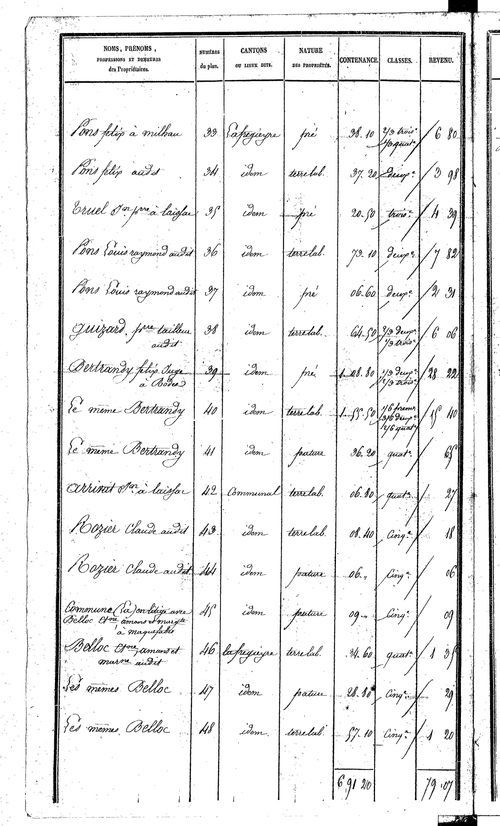 NOMS, PRÉNOMS, PROFESSIONS ET DEMEURES des Propriétaires. NUMÉROS du plan. CANTONS OU LIEUX DITS. NATURE DES PROPRIÉTÉS. CONTENANCE. CLASSES. REVENU.
Pons felix à milhau 33 Lafrégieyre pré 38.10 2/3 trois.e 1/3 quat.e 6 80
Pons felix audit 34 idem terre lab. 37.20 deux.e 3 98
Truel à laissac 35 idem pré 20.50 trois.e 4 39
Pons Louis raymond audit 36 idem terre lab. 73.10 deux.e 7 82
Pons Louis raymond audit 37 idem pré 06.60 deux.e 2 31
guizard pre tailleur audit 38 idem terre lab. 64.50 6 06
Bertrandy felix Juge à Rodez 39 idem pré 1.08.80 28 22
Le même Bertrandy 40 idem terre lab. 1.55.50 15 40
Le même Bertrandy 41 idem pature 36.20 quat.e 65
arrivat à laissac 42 Communal terre lab. 06.80 quat.e 27
Rozier Claude audit 43 idem terre lab. 08.40 Cinq.e 18
Rozier Claude audit 44 idem pature 06.. Cinq.e 06
Commune (La) en litige avec Belloc amans et à maquefabre 45 idem pature 09.. Cinq.e 09
Belloc amans et audit 46 lafrégieyre terre lab. 34.60 quat.e 1 35
Les mêmes Belloc 47 idem pature 28.80 Cinq.e 29
Les mêmes Belloc 48 idem terre lab. 57.10 Cinq.e 1 20
6 91 20 79.07